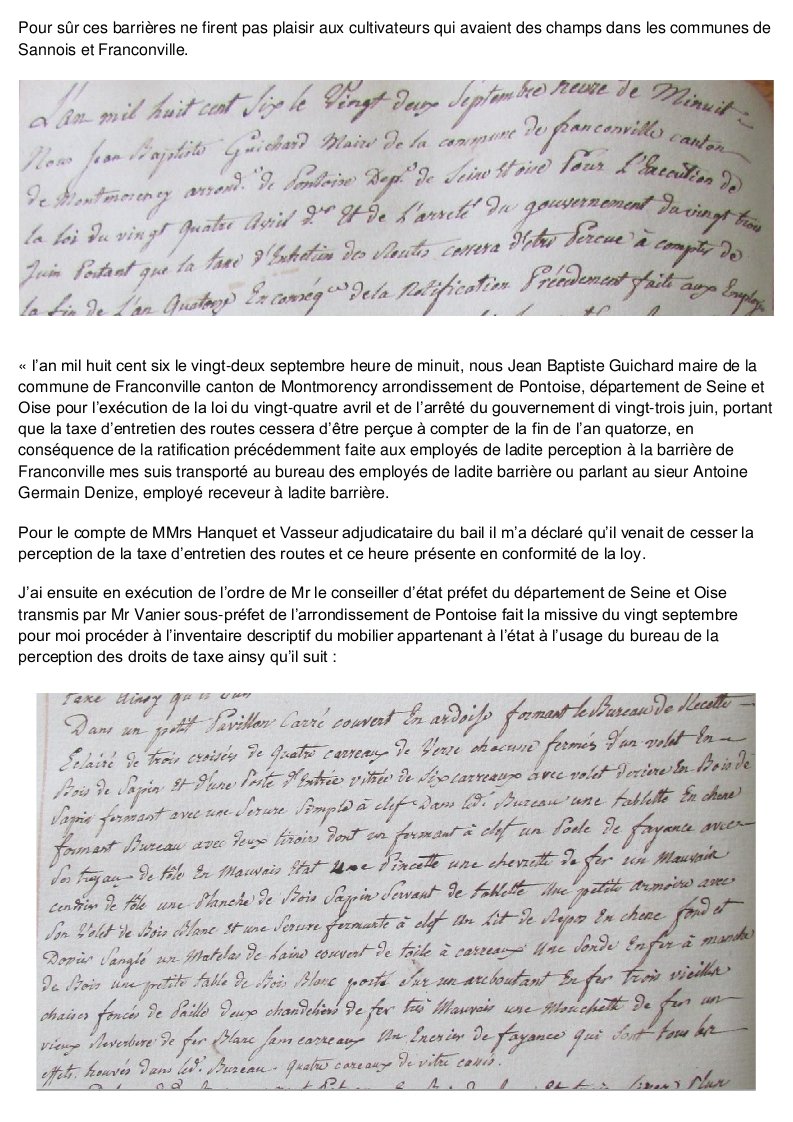 Pour sûr ces barrières ne firent pas plaisir aux cultivateurs qui avaient des champs dans les communes de
Sannois et Franconville.
L'an mil huit cent Six le Vingt deux Septembre heure de Minuit
Nous Jean Baptiste Guichard Maire de la commune de franconville canton
de Montmorency arrond.t de Pontoise Dep.t de Seine et Oise Pour L'Execution de
la loi du vingt quatre Avril d.er Et de L'arreté du gouvernement du vingt trois
Juin Portant que la taxe d'Entretien des Routes cessera d'être Percue à compter de
la fin de L'an Quatorze En conséq.ce de la Notification Précédement faite aux Employés
« l’an mil huit cent six le vingt-deux septembre heure de minuit, nous Jean Baptiste Guichard maire de la
commune de Franconville canton de Montmorency arrondissement de Pontoise, département de Seine et
Oise pour l’exécution de la loi du vingt-quatre avril et de l’arrêté du gouvernement di vingt-trois juin, portant
que la taxe d’entretien des routes cessera d’être perçue à compter de la fin de l’an quatorze, en
conséquence de la ratification précédemment faite aux employés de ladite perception à la barrière de
Franconville mes suis transporté au bureau des employés de ladite barrière ou parlant au sieur Antoine
Germain Denize, employé receveur à ladite barrière.
Pour le compte de MMrs Hanquet et Vasseur adjudicataire du bail il m’a déclaré qu’il venait de cesser la
perception de la taxe d’entretien des routes et ce heure présente en conformité de la loy.
J’ai ensuite en exécution de l’ordre de Mr le conseiller d’état préfet du département de Seine et Oise
transmis par Mr Vanier sous-préfet de l’arrondissement de Pontoise fait la missive du vingt septembre
pour moi procéder à l’inventaire descriptif du mobilier appartenant à l’état à l’usage du bureau de la
perception des droits de taxe ainsy qu’il suit :
taxe ainsy qu'il suit
Dans un petit Pavillon Carré couvert En ardoise formant le Bureau de Recette
Eclairé de trois croisés de quatre carreaux de Verre chacune fermés d'un volet En
Bois de Sapin Et d'une Porte d'Entrée vitrée de Six carreaux avec volet deriere En Bois de
Sapin fermant avec une Serure Simple à clef Dans led.t Bureau une tablette En chene
formant Bureau avec deux tiroirs dont un fermant à clef un Poele de fayance avec
Ses tuyaux de tôle En Mauvais Etat Une Pincette une chevrette de fer un Mauvais
cendrier de tôle une Planche de Bois Sapin Servant de tablette Une petite armoire avec
Son Volet de Bois Blanc et une Serure fermante à clef Un Lit de Repos En chene fond et
Dossier Sanglé un Matelas de Laine couvert de toile à carreaux Une Sonde En fer à manche
de Bois une petite table de Bois Blanc porté Sur un arcboutant En fer trois vieilles
chaises foncés de Paille deux chandeliers de fer très Mauvais une Mouchette de fer un
vieux Reverbere de fer Blanc Sans carreaux Un Encrier de fayance qui Sont tous les
effets trouvés dans led.t Bureau. Quatre careaux de vitre cassés.